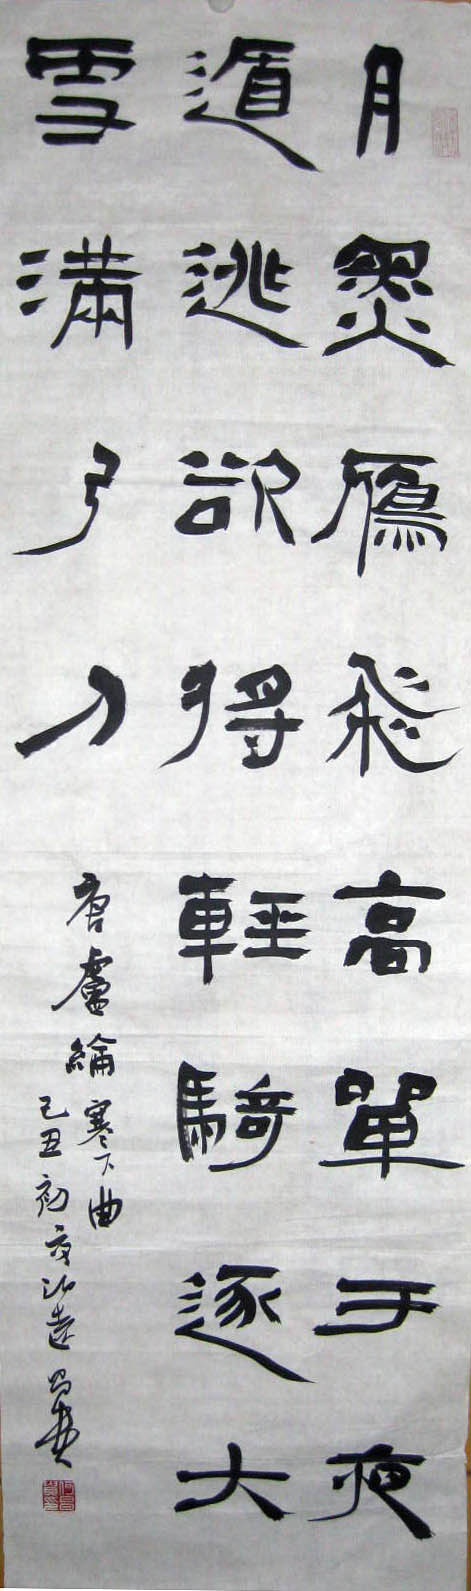 月黑鴈飛高單于夜
遁逃欲將輕騎逐大
雪滿弓刀
唐盧綸塞下曲
己丑初夏